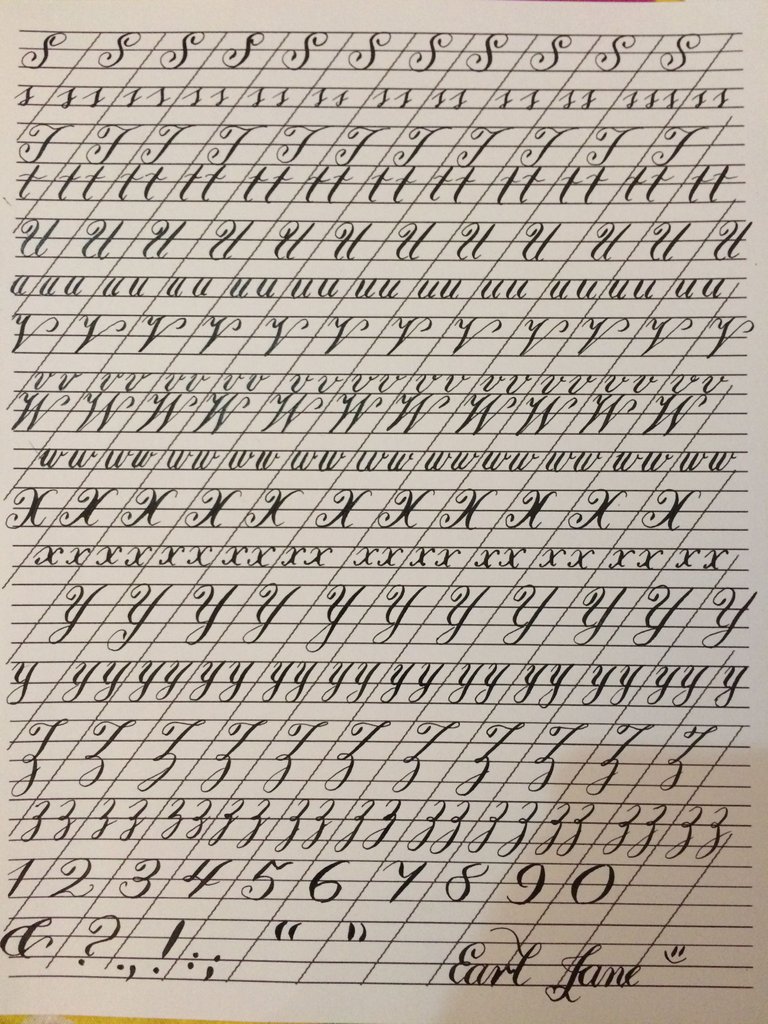 S S S S S S S S S S S
s ss ss ss ss ss ss ss ss ss sss ss
T T T T T T T T T T T
t tt tt tt tt tt tt tt tt tt tt tt
U U U U U U U U U U U U
uuu uu uu uu uu uu uu uu uu uu uu
V V V V V V V V V V V V
vv vv vv vv vv vv vv vv vv vv vv
W W W W W W W W W W W
ww ww ww ww ww ww ww ww ww ww ww
X X X X X X X X X X X
xx xx xx xx xx xx xx xx xx xx xx
Y Y Y Y Y Y Y Y Y Y Y
y yy yy yy yy yy yy yy yy yy yy y
Z Z Z Z Z Z Z Z Z Z Z
zz zz zz zz zz zz zz zz zz zz zz
1 2 3 4 5 6 7 8 9 0
& ? . , ! : ; “ ” Earl Jane